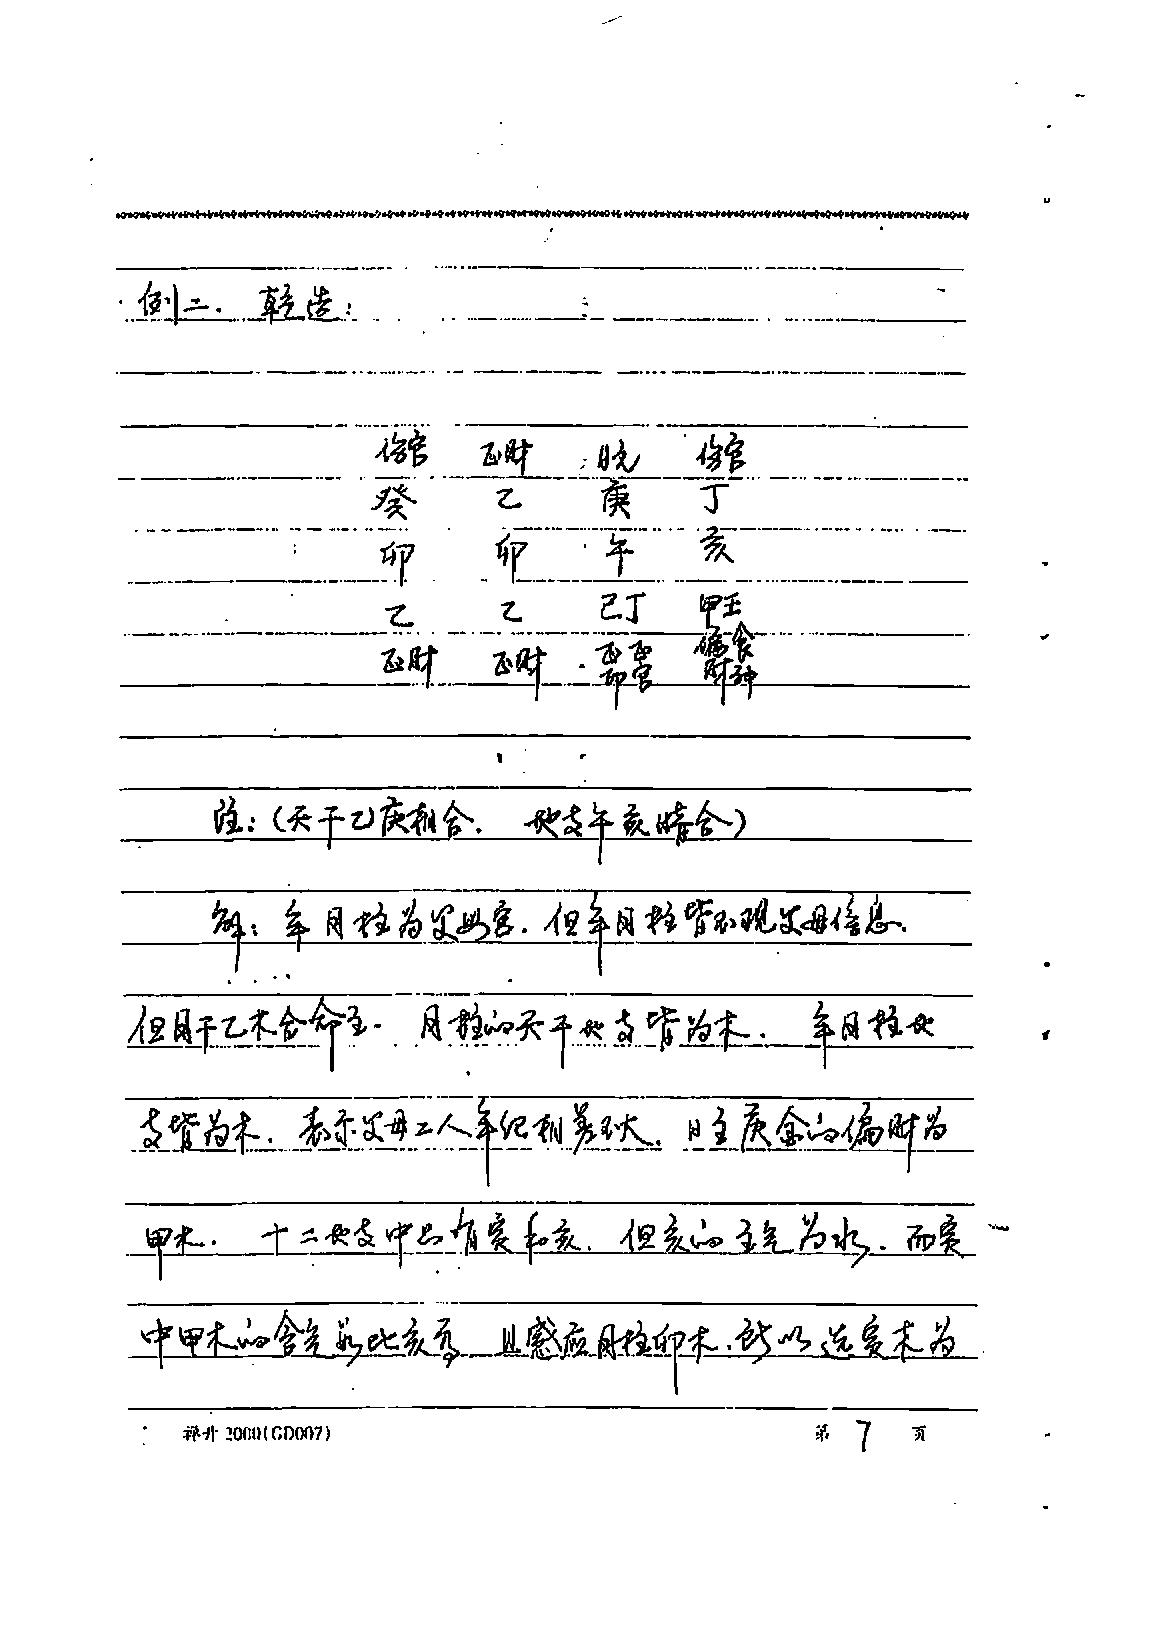 例二. 乾造:
伤官 正财 日元 伤官
癸 乙 庚 丁
卯 卯 午 亥
乙 乙 己丁 甲壬
正财 正财 正印 正官 偏财 食神
注:(天干乙庚相合. 地支午亥暗合)
解: 年月柱为父母宫. 但年月柱皆不现父母信息.
但月干乙木合命主. 月柱的天干地支皆为木. 年月柱地
支皆为木. 表示父母二人年纪相差不大. 日主庚金的偏财为
甲木. 十二地支中只有寅和亥. 但亥的主气为水. 而寅
中甲木的含气数比亥高 且感应月柱卯木. 所以选寅木为
禅升 2000(GD007) 第 7 页